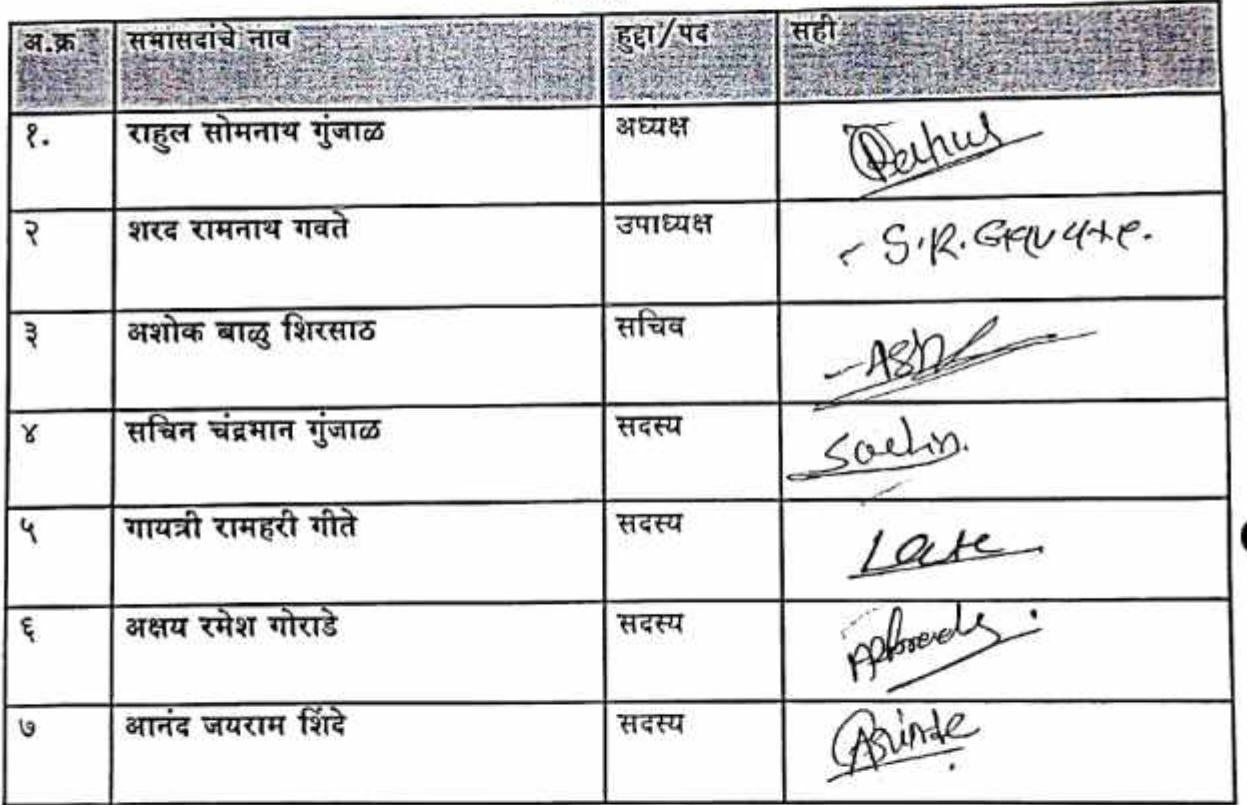 अ.क्र सभासदांचे नाव हुद्दा/पद सही
१. राहुल सोमनाथ गुंजाळ अध्यक्ष Rahul
२ शरद रामनाथ गवते उपाध्यक्ष - S.R. Gavate.
३ अशोक बाळु शिरसाठ सचिव
४ सचिन चंद्रभान गुंजाळ सदस्य Sachin.
५ गायत्री रामहरी गीते सदस्य
६ अक्षय रमेश गोराडे सदस्य
७ आनंद जयराम शिंदे सदस्य